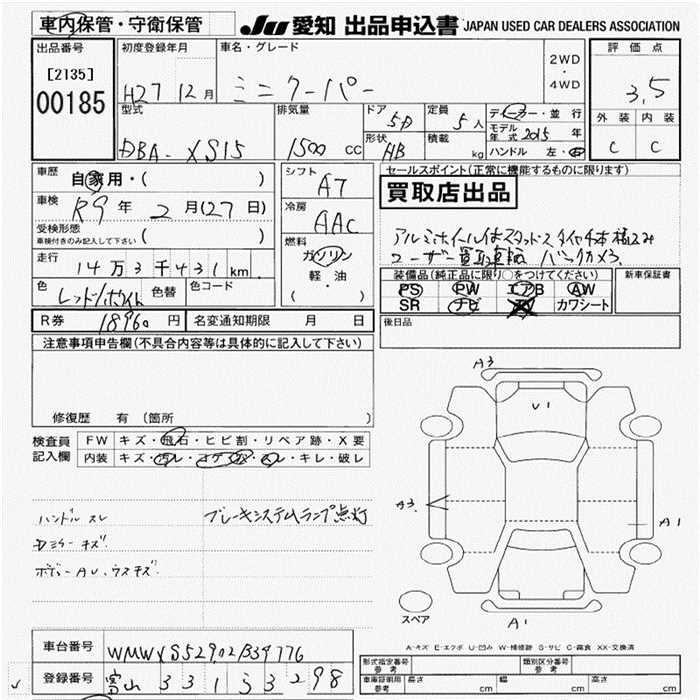 車内保管・守衛保管
JU 愛知 出品申込書 JAPAN USED CAR DEALERS ASSOCIATION
出品番号
[2135]
00185
初度登録年月
H27 12月
車名・グレード
ミニクーパー
2WD
・
4WD
評価点
3.5
外装 内装
C C
型式
DBA-XS15
排気量
1500 CC
ドア
5D
定員
5人
形状
HB
積載
kg
ディーラー・並行
モデル年式 2015 年
ハンドル 左・右
車歴
自家用・( )
車検
R9年 2月(27日)
受検形態
車検付きのみ記入して下さい ( )
走行
14万3千431km
色
レッド/ホワイト
色替
色コード
シフト
AT
冷房
AAC
燃料
ガソリン
軽・油
( ・ )
セールスポイント(正常に機能するものに限ります)
買取店出品
アルミホイール付スタッドレスタイヤ4本積込み
ユーザー買取車輌 バックカメラ
装備品(純正品に限り○をつけてください)
PS PW エアB AW
SR ナビ カワシート
新車保証書
後日品
R券 18960円
名変通知期限 月 日
注意事項申告欄(不具合内容等は具体的に記入して下さい)
修復歴 有(箇所
検査員記入欄
FW キズ・飛石・ヒビ割・リペア跡・X要
内装 キズ・汚レ・コゲ・穴・スレ・キレ・破レ
ハンドル スレ
ブレーキシステムランプ点灯
Dミラー キズ
ボディー AU、ウスキズ
A3
U1
A3
A1
A1
スペア
A-キズ E-エクボ U-凹み W-補修跡 S-サビ C-腐食 XX-交換済
車台番号
WMWXS52902B34776
登録番号
富山 331 う 3298
型式指定番号 参考
類別区分番号 参考
車庫証明用 参考
長さ cm
幅 cm
高さ cm